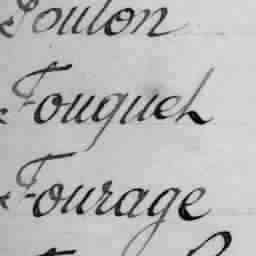 Foulon
Fouquet
Fourage